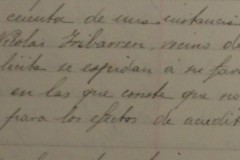 cuenta de una instancia
Nicolás Iribarren, vecino de
licita se expidan á su favo
en las que conste que no
para los efectos de acredit